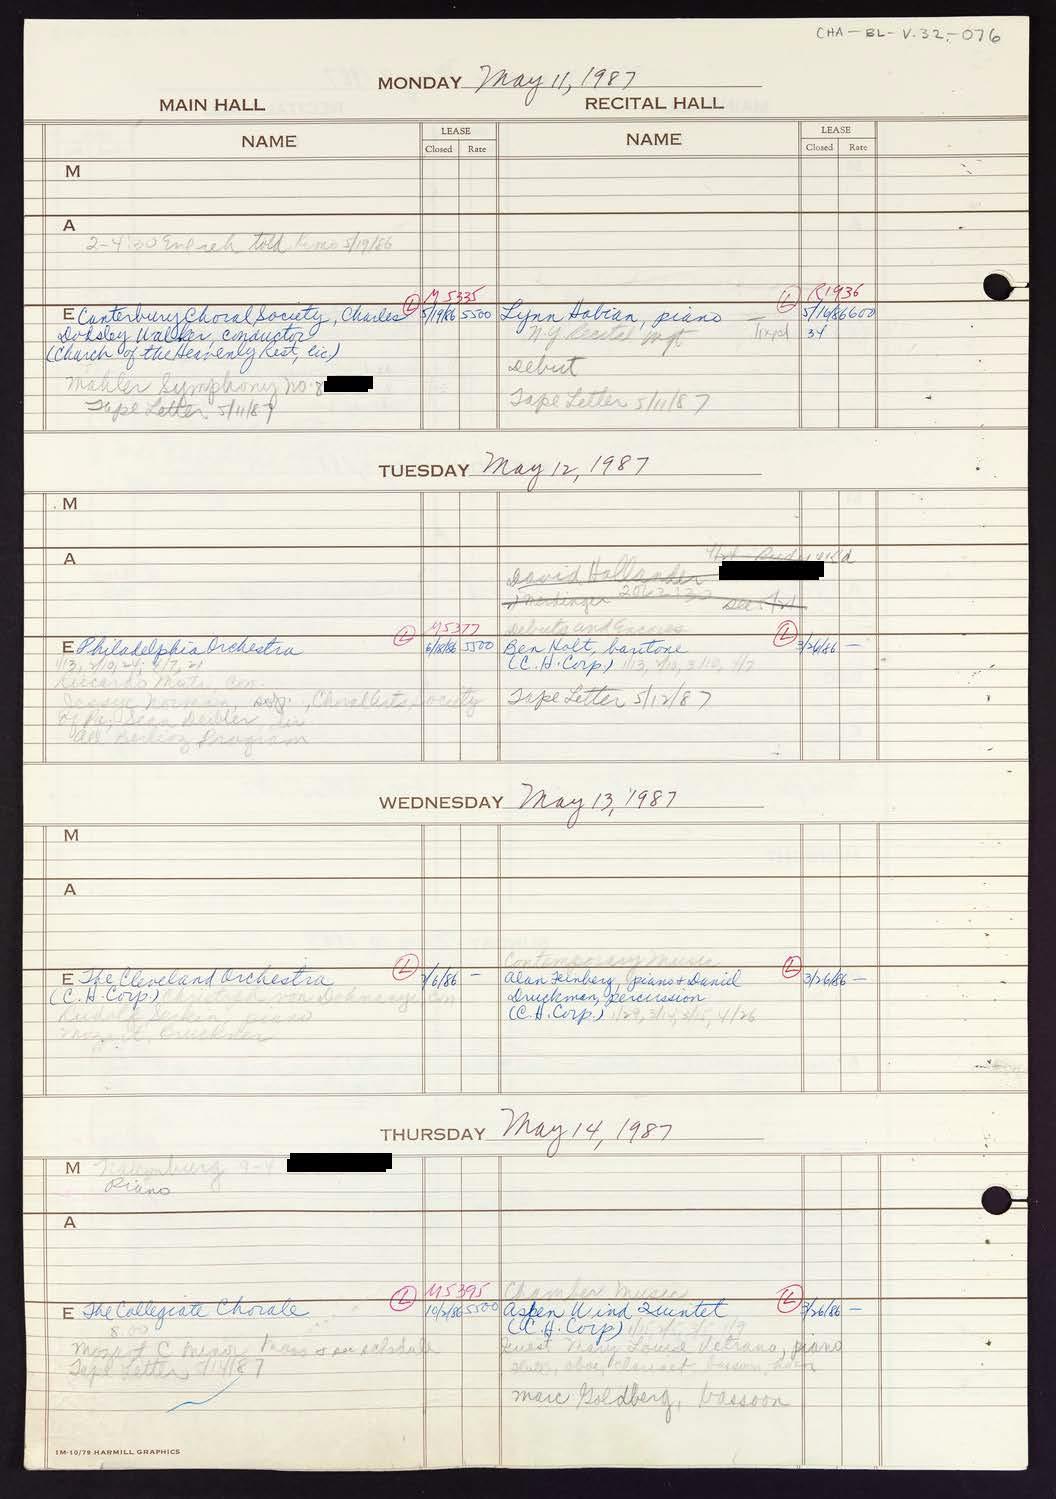 CHA-BL-V.32-076
MONDAY May 11, 1987
MAIN HALL RECITAL HALL
NAME LEASE NAME LEASE
Closed Rate Closed Rate
M
A
2-4:30 told 5/19/86
M5335 R1936
E Canterbury Choral Society, Charles L 5/19/86 5500 Lynn Habian, piano L 600
Dodsley Walker, conductor N.Y. Recital Mgt 34
(Church of the Heavenly Rest, lic)
Debut
Mahler Symphony No. 8
Tape Letter 5/11/87 Tape Letter 5/11/87
TUESDAY May 12, 1987
M
A
David Hollander
see
M5377 Debuts and Encores
E Philadelphia Orchestra L 5500 Ben Holt, baritone L 3/26/86 —
(C.H. Corp.) 1/13, 2/10, 3/10, 4/7
Riccardo Muti, con.
Jessye Norman, sop., Choral Arts Society Tape Letter 5/12/87
of Pa, Sean Deibler, dir
All Berlioz Program
WEDNESDAY May 13, 1987
M
A
Contemporary Music
E The Cleveland Orchestra L — Alan Feinberg, piano + Daniel L 3/26/86 —
(C.H. Corp.) Christoph von Dohnanyi, con Druckman, percussion
Rudolf Serkin, piano (C.H. Corp.)
Mozart, Bruckner
THURSDAY May 14, 1987
M Naumburg 9-4
Piano
A
M5395 Chamber Music
E The Collegiate Chorale L 10/2/86 5500 Aspen Wind Quintet L 3/26/86 —
8:00 (C.H. Corp)
Mozart C Minor Mass Guest Mary Louise Vetrano, piano
Tape Letter, 5/14/87 flute, oboe, clarinet, bassoon, horn
Marc Goldberg, bassoon
1M-10/79 HARMILL GRAPHICS